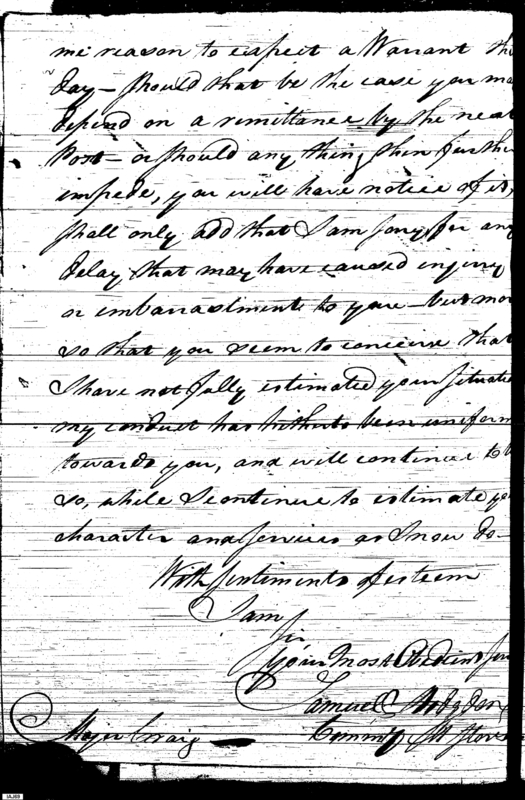 me reason to expect a Warrant thi
day – should that be the case you ma
depend on a remittance by the next
Post – or should any thing then further
impede, you will have notice of it,
shall only add that I am sorry for any
delay that may have caused injury
or embarrassments to you – but mor
so that you seem to conceive that
I have not fully estimated your situatio
my conduct has hitherto been uniform
towards you, and will continue to b
so, while I continue to estimate yo
character and services as I now do –
With sentiments of esteem
I am
Sir
Your Most Obedient Ser
Samuel Hodgdon
Commy Mt Stores
Major Craig –
IAJ69